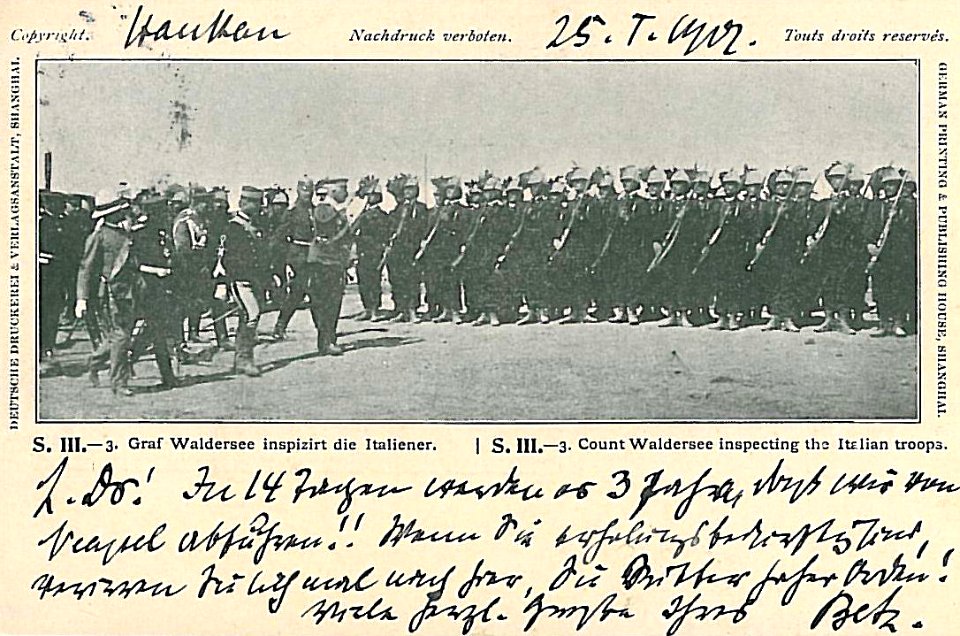 Copyright. Hankau Nachdruck verboten. 25. I. 1902. Touts droits reservés.
DEUTSCHE DRUCKEREI & VERLAGSANSTALT, SHANGHAI.
GERMAN PRINTING & PUBLISHING HOUSE, SHANGHAI.
S. III.—3. Graf Waldersee inspizirt die Italiener. | S. III.—3. Count Waldersee inspecting the Italian troops.
L. Dr! In 14 Tagen werden es 3 Jahre, daß wir von
Neapel abfuhren!! Wenn Sie erholungsbedürftig sind,
Sie mal nach hier, Sie Ritter hoher Orden!
Viele herzl. Grüße Ihres Betz.